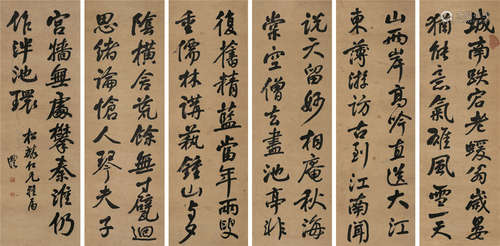 城南跌宕老蝯翁歲晏
猶能意氣雄風雪一天
山兩岸高吟直送大江
東薄游訪古到江南聞
說天留妙相庵秋海
棠空僧去盡池亭非
復舊精藍當年兩叟
重儒林講藝鐘山
陰橫舍荒餘無寸甓迴
思緒論愴人琴夫子
宮牆無處攀秦淮仍
作泮池環
仁兄屬